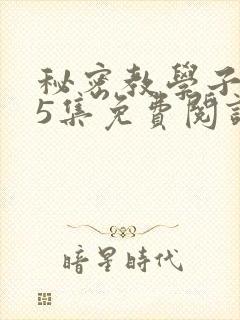 秘密教學子
5集免費閱
暗星時代